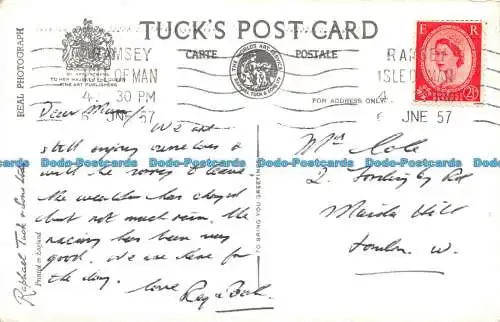 TUCK'S POST CARD
CARTE POSTALE
REAL PHOTOGRAPH
BY APPOINTMENT
TO HER MAJESTY THE QUEEN
FINE ART PUBLISHERS
THE WORLD'S ART SERVICE
FOR ADDRESS ONLY
RAMSEY
ISLE OF MAN
4. 30 PM
JNE 57
RAMSEY
ISLE OF MAN
JNE 57
E R
2½D
Dear Mum,
We are
still enjoying ourselves &
will be sorry to leave.
the weather has changed
but not much rain. The
racing has been very
good. We are here for
the day.
love
Reg &
Mrs Cole
2.
Maida Hill
London. W.
TO BRING YOU GREETINGS
Raphael Tuck & Sons Ltd
Printed in England
Postcards-Worldwide